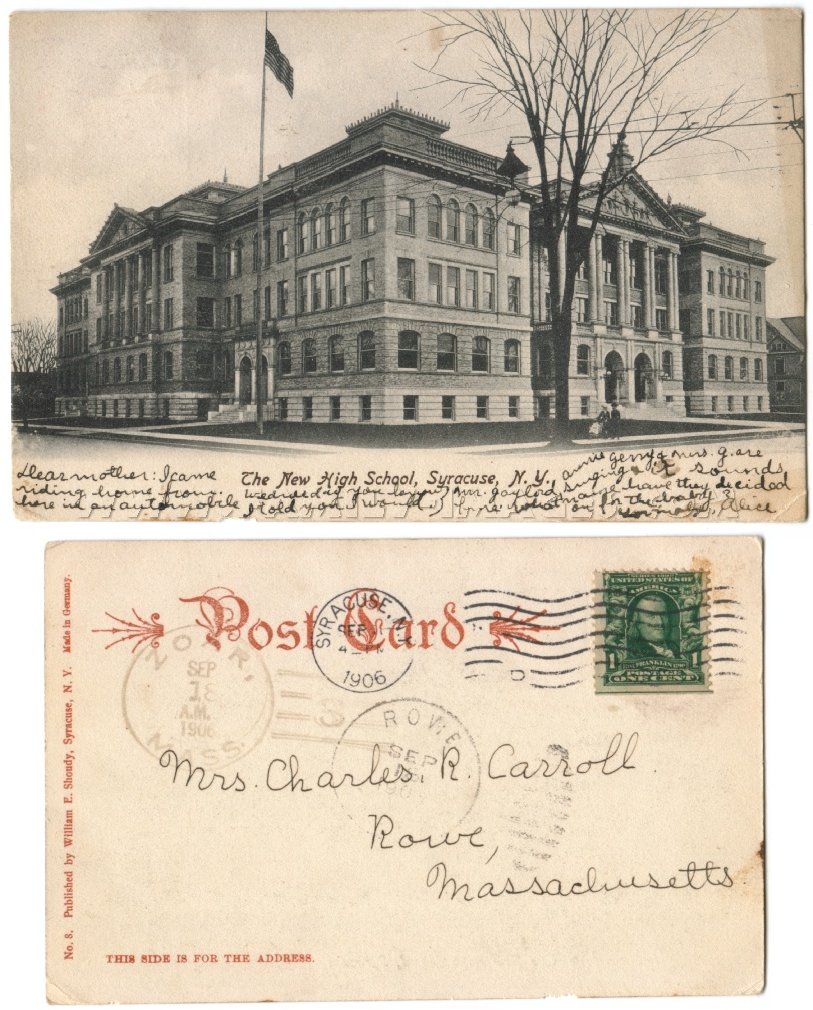 The New High School, Syracuse, N. Y.
Dear mother: I came
riding home from
here in an automobile
Wednesday you
I told you I would
Mr. Gaylord singing
annie Gerry & mrs. g. are
it sounds
name have they decided
on for the baby?
Alice
Post Card
SYRACUSE, N.Y.
SEP
1906
NOAR,
SEP
18
A.M.
1906
MASS.
ROWE
SEP
UNITED STATES OF
AMERICA
1 FRANKLIN 1
POSTAGE
ONE CENT
Mrs. Charles R. Carroll
Rowe,
Massachusetts.
THIS SIDE IS FOR THE ADDRESS.
No. 8. Published by William E. Shoudy, Syracuse, N. Y. Made in Germany.